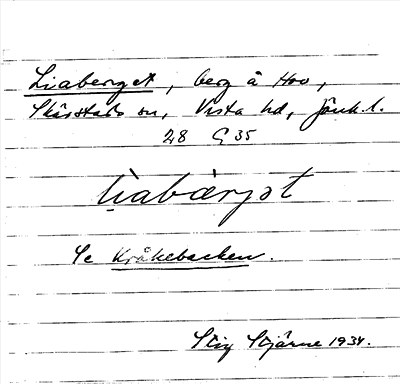 Liaberget, berg å Hov,
Skärstads sn, Vista hd, Jönk. l.
28 G 35
Se Kråkebacken.
Stig Stjärne 1934.